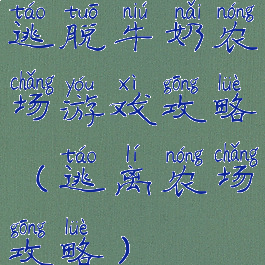 táo tuō niú nǎi nóng
逃脱牛奶农
chǎng yóu xì gōng lüè
场游戏攻略
táo lí nóng chǎng
(逃离农场
gōng lüè
攻略)